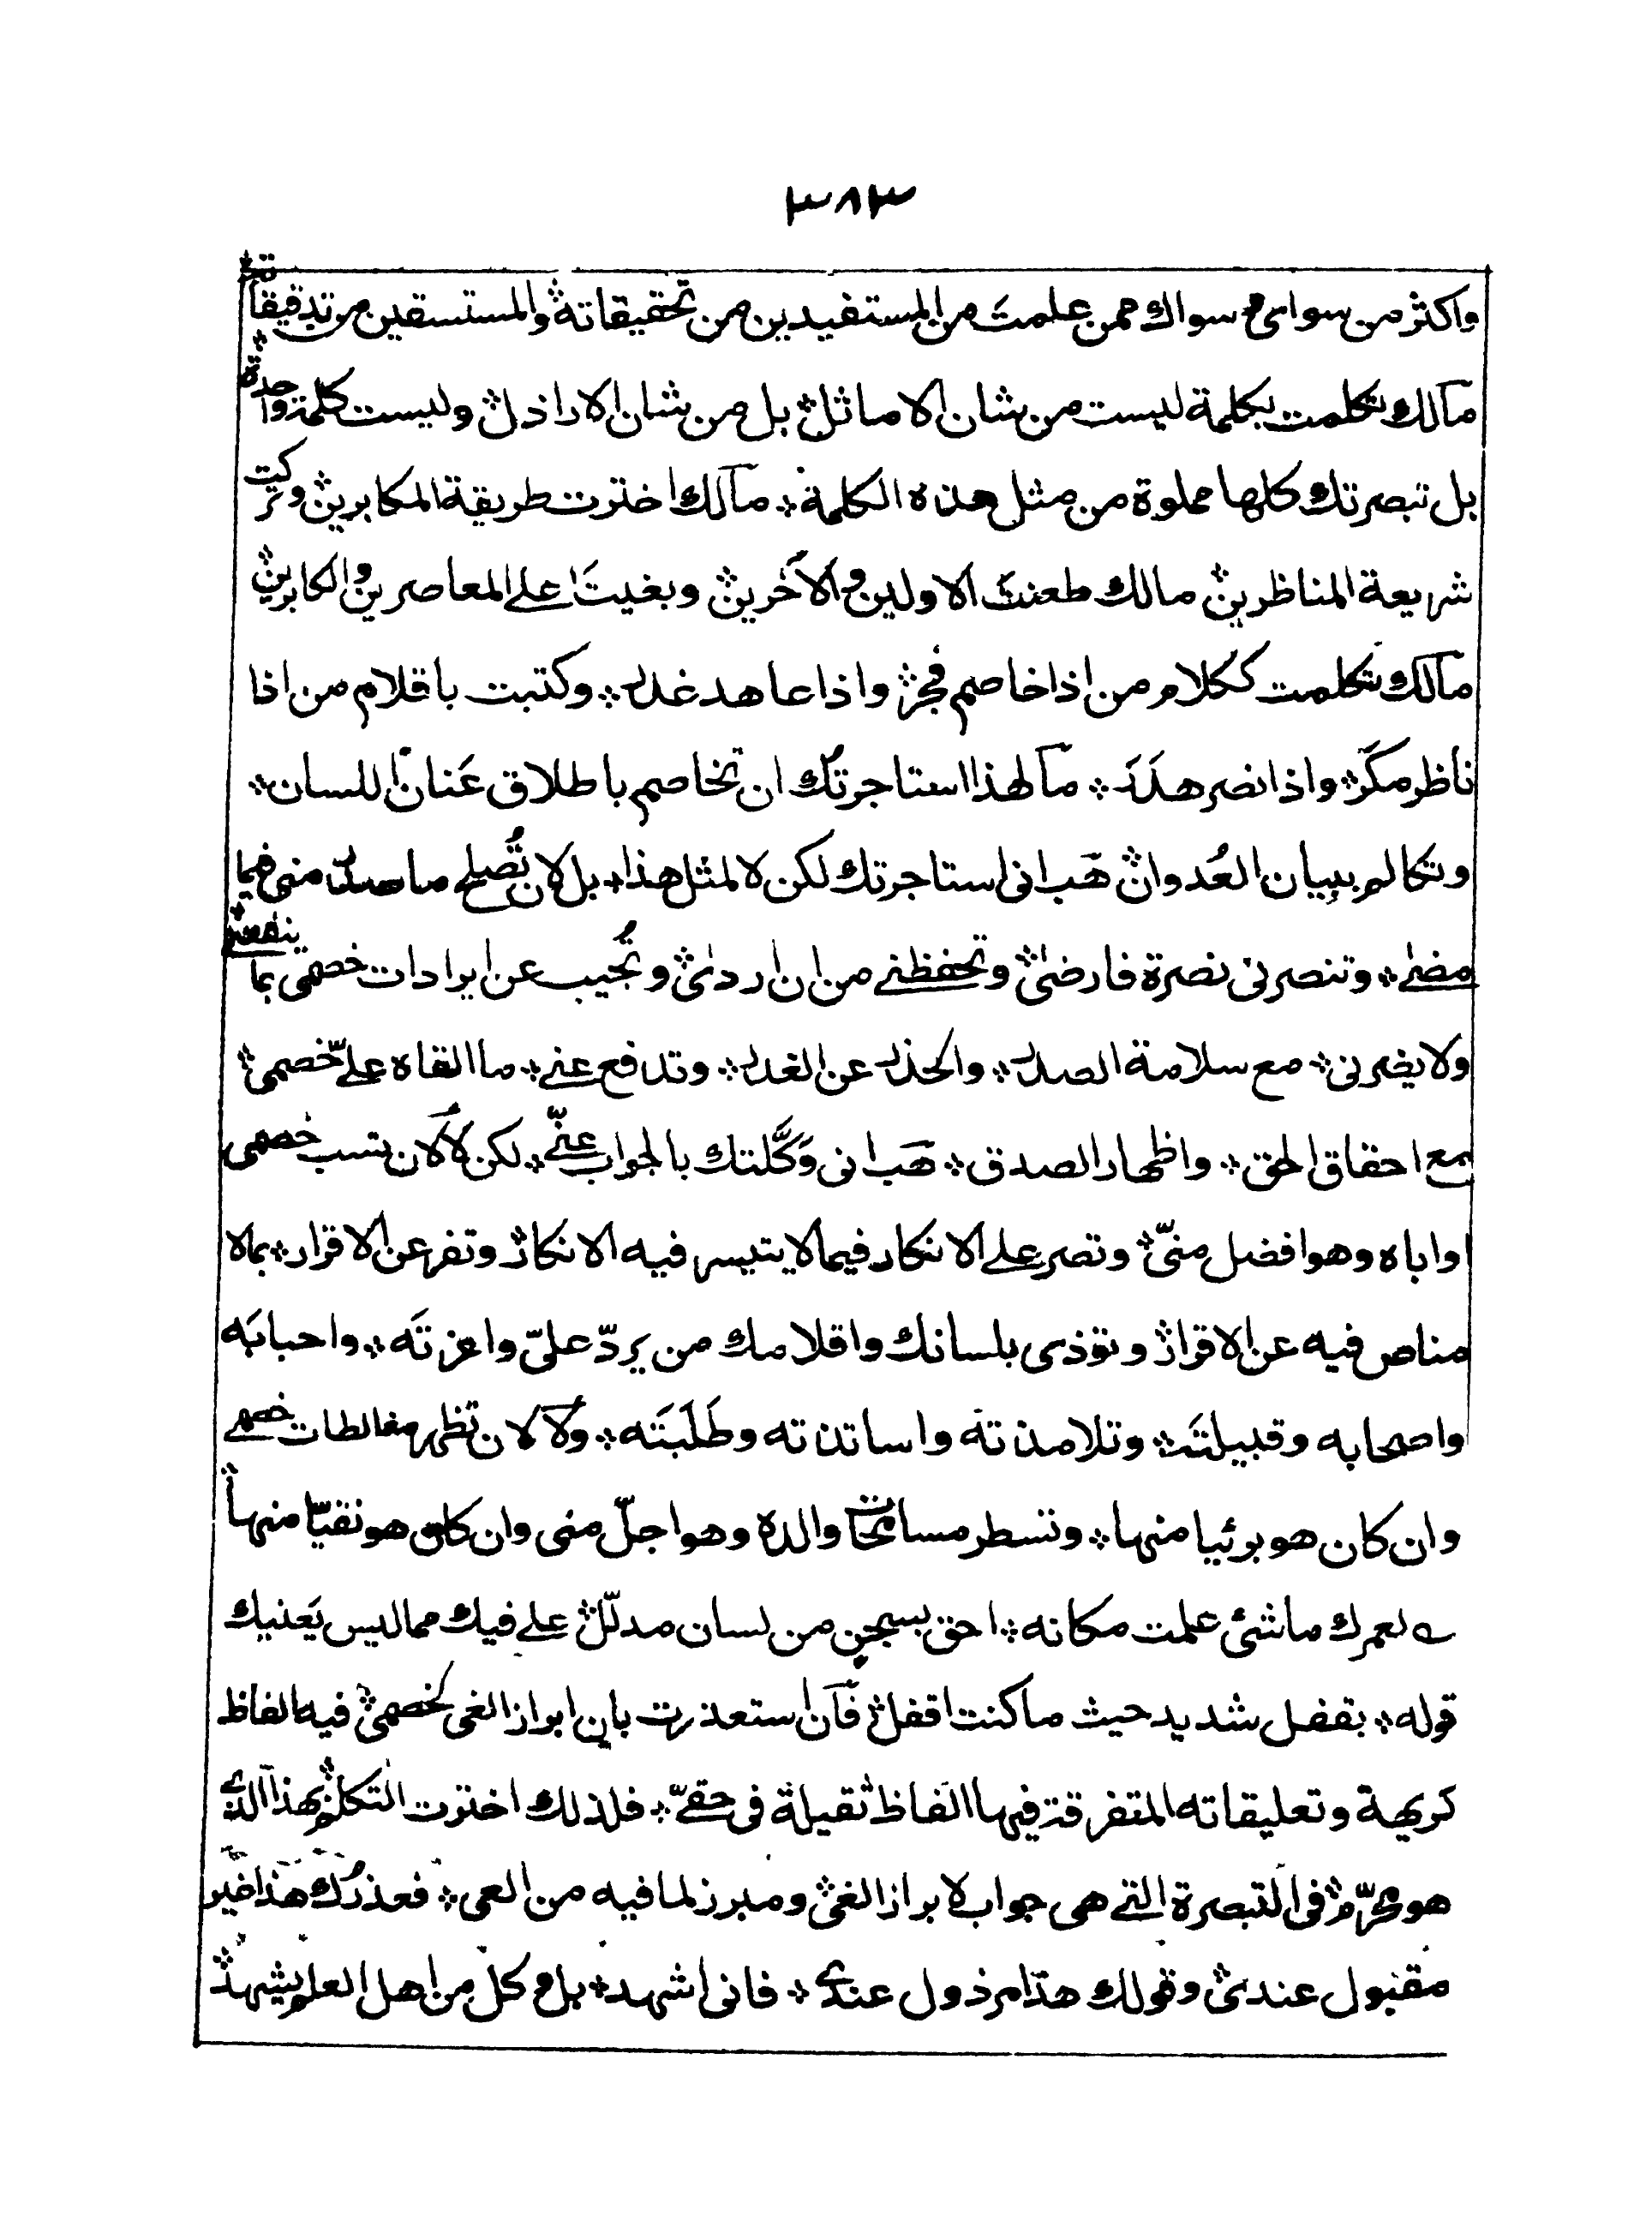 ٣٨٣
واكثر من سوای و سواك ممن علمتَ من المستفيدين من تحقيقاته؞ والمستسقين من تدقيقاته؞
مآلك تكلمت بكلمة ليست من شان الاماثل؞ بل من شان الاراذل؞ وليست كلمة واحدة
بل تبصرتك كلها مملوة من مثل هذه الكلمة؞ مآلك اخترت طريقة المكابرين؞ وتركت
شريعة المناظرين؞ مالك طعنتَ الاولين والآخرين؞ وبغيتَ علے المعاصرين والكابرين؞
مآلك تكلمت ككلام من اذا خاصم فجر؞ واذا عاهد غدر؞ وكتبت باقلام من اذا
ناظر مكَر؞ واذا نصر هدَدَ؞ مآ لهذا استاجرتك ان تخاصم باطلاق عَنان اللسان؞
وتكالم ببيان العُدوان؞ هَب انی استاجرتك لكن لا لمثل هذا؞ بل لان تُصلح ما صدر منی فيما
مضےٰ؞ وتنصرنی نصرة فارضیٰ؞ وتحفظنے من ان اردیٰ؞ وتُجيب عن ايرادات خصمی بما ينفعنی؞
ولا يضرنی؞ مع سلامة الصدر؞ والحذر عن الغدر؞ وتدفع عنے؞ ما القاه علےّ خصمی؞
مع احقاق الحق؞ واظهار الصدق؞ هَب انی وَكَّلتك بالجواب عنّے؞ لكن لا لان تسب خصمی
او اباه وهو افضل منیّ؞ وتصر علے الانكار فيما لا يتيسر فيه الانكار؞ وتفر عن الاقرار؞ بما لا
مناص فيه عن الاقرار؞ وتؤذی بلسانك واقلامك من يردّ علیّ واعزتَه؞ واحبابَه
واصحابه وقبيلتَه؞ وتلامذتَه واساتذته وطَلَبَتَه؞ ولا لان تظهر مغالطات خصمے
وان كان هو برئيا منها؞ وتسطر مسامحات والده وهو اجلّ منی وان كان هو نقيّا منها؞
؎ لعمرك ما شئ علمت مكانه؞ احق بسجن من لسان مدلّل؞ علے فيك مما ليس يَعنيك
قوله؞ بقفل شديد حيث ما كنت اقفل؞ فآن استعذرت بان ابراز الغی لخصمی؞ فيه الفاظ
كريهة وتعليقاته المتفرقة فيها الفاظ ثقيلة فی حقےّ؞ فلذلك اخترت التكلم؞ بهذا الذے
هو محرّم؞ فی التبصرة التے هی جواب لابراز الغی؞ ومبرز لما فيه من العی؞ فعذرُك هذا غير
مقبول عندی؞ وقولك هذا مرذول عندے؞ فانی اشهد؞ بل وكل من اهل العلم يشهد؞